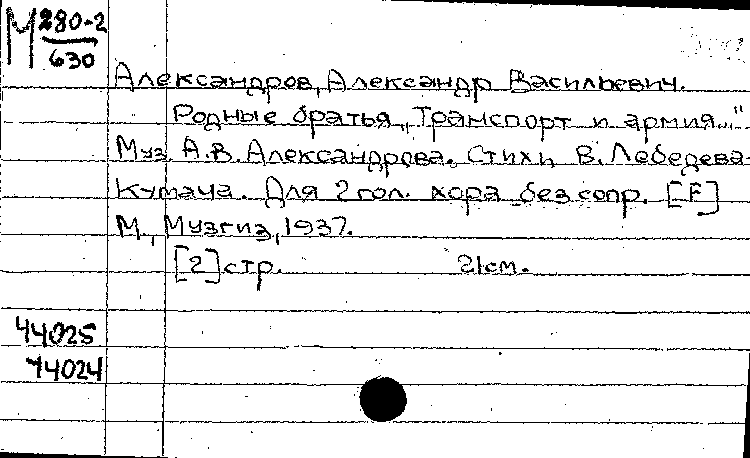 М 280-2
630
Александров, Александр Васильевич.
Родные братья „Транспорт и армия..."
Муз. А.В. Александрова. Стихи В. Лебедева-
Кумача. Для 2 гол. хора без сопр. [F]
М., Музгиз, 1937.
[2] стр. 21 см.
44025
44024